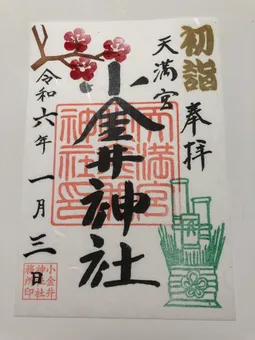 初詣
奉拝
天満宮
小金井神社
令和六年一月三日
天満宮
小金井
神社
務所印